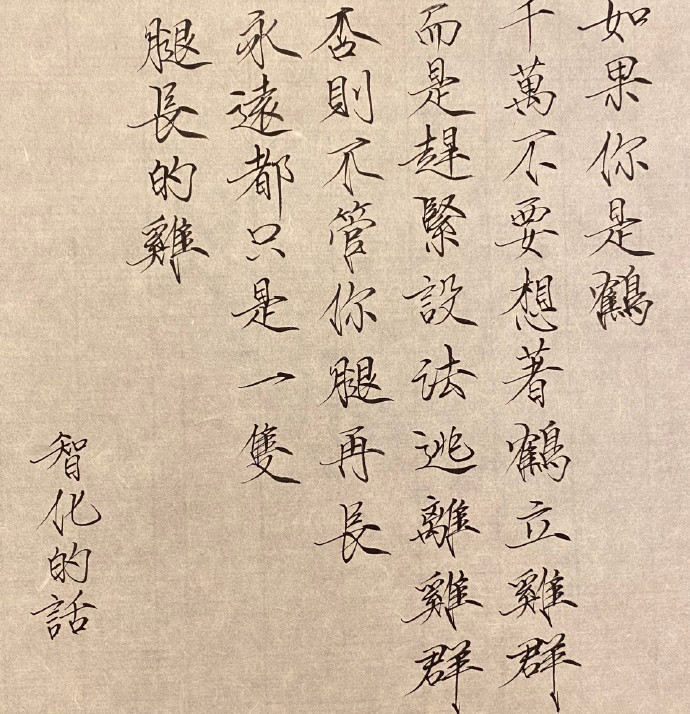 如果你是鶴
千萬不要想著鶴立雞群
而是趕緊設法逃離雞群
否則不管你腿再長
永遠都只是一隻
腿長的雞
智化的話